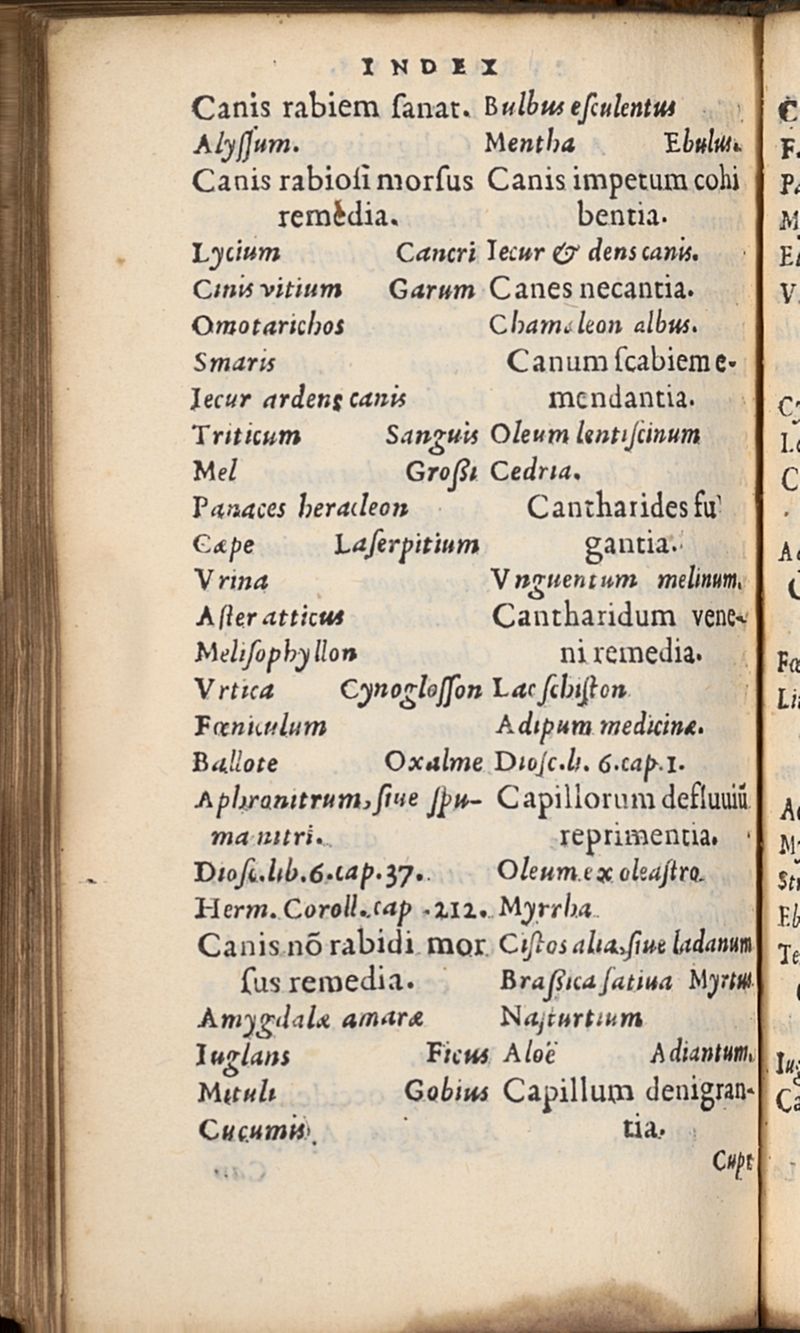 INDEX
Canis rabiem ſanat.
Alyſſum.
Canis rabioſi morſus
remedia.
Lycium Cancri
Cinis vitium Garum
Omotarichos
Smaris
Iecur ardens canis
Triticum Sanguis
Mel Groſſi
Panaces heracleon
Cæpe Laſerpitium
Vrina
Aſter atticus
Meliſophyllon
Vrtica Cynogloſſon
Fœniculum
Ballote Oxalme
Aphronitrum, ſiue ſpu-
ma nitri.
Dioſc.lib.6.cap.37.
Herm. Coroll.cap .212.
Canis nō rabidi mor
ſus remedia.
Amygdalæ amaræ
Iuglans Ficus
Mituli Gobius
Cucumis
Bulbus eſculentus
Mentha Ebulus.
Canis impetum cohi
bentia.
Iecur & dens canis.
Canes necantia.
Chamæleon albus.
Canum ſcabiem e-
mendantia.
Oleum lentiſcinum
Cedria.
Cantharides fu
gantia.
Vnguentum melinum.
Cantharidum vene-
ni remedia.
Lac ſchiſton
Adipum medicinæ.
Dioſc.li. 6.cap.1.
Capillorum defluuiū
reprimentia.
Oleum ex oleaſtro.
Myrrha
Ciſtos alia, ſiue ladanum
Braſſica ſatiua Myrtus
Naſturtium
Aloë Adiantum.
Capillum denigran-
tia.
Cupr